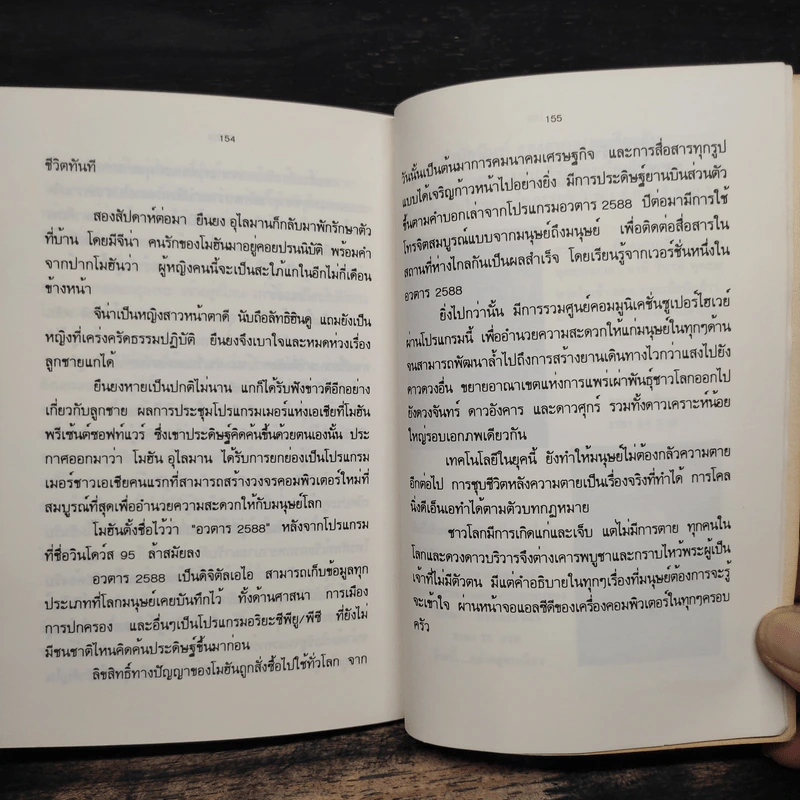 154
ชีวิตทันที
สองสัปดาห์ต่อมา ยืนยง อุไลมานก็กลับมาพักรักษาตัว
ที่บ้าน โดยมีจีน่า คนรักของโมฮันมาอยู่คอยปรนนิบัติ พร้อมคำ
จากปากโมฮันว่า ผู้หญิงคนนี้จะเป็นสะใภ้แกในอีกไม่กี่เดือน
ข้างหน้า
จีน่าเป็นหญิงสาวหน้าตาดี นับถือลัทธิฮินดู แถมยังเป็น
หญิงที่เคร่งครัดธรรมปฏิบัติ ยืนยงจึงเบาใจและหมดห่วงเรื่อง
ลูกชายแกได้
ยืนยงหายเป็นปกติไม่นาน แกก็ได้รับฟังข่าวดีอีกอย่าง
เกี่ยวกับลูกชาย ผลการประชุมโปรแกรมเมอร์แห่งเอเชียที่โมฮัน
พรีเซ้นต์ซอฟท์แวร์ ซึ่งเขาประดิษฐ์คิดค้นขึ้นด้วยตนเองนั้น ประ
กาศออกมาว่า โมฮัน อุไลมาน ได้รับการยกย่องเป็นโปรแกรม
เมอร์ชาวเอเชียคนแรกที่สามารถสร้างวงจรคอมพิวเตอร์ใหม่ที่
สมบูรณ์ที่สุดเพื่ออำนวยความสะดวกให้กับมนุษย์โลก
โมฮันตั้งชื่อไว้ว่า "อวตาร 2588" หลังจากโปรแกรม
ที่ชื่อวินโดว์ส 95 ล้าสมัยลง
อวตาร 2588 เป็นดิจิตัลเอไอ สามารถเก็บข้อมูลทุก
ประเภทที่โลกมนุษย์เคยบันทึกไว้ ทั้งด้านศาสนา การเมือง
การปกครอง และอื่นๆเป็นโปรแกรมอริยะซีพียู/พีซี ที่ยังไม่
มีชนชาติไหนคิดค้นประดิษฐ์ขึ้นมาก่อน
ลิขสิทธิ์ทางปัญญาของโมฮันถูกสั่งซื้อไปใช้ทั่วโลก จาก
155
วันนั้นเป็นต้นมาการคมนาคมเศรษฐกิจ และการสื่อสารทุกรูป
แบบได้เจริญก้าวหน้าไปอย่างยิ่ง มีการประดิษฐ์ยานบินส่วนตัว
ขึ้นตามคำบอกเล่าจากโปรแกรมอวตาร 2588 ปีต่อมามีการใช้
โทรจิตสมบูรณ์แบบจากมนุษย์ถึงมนุษย์ เพื่อติดต่อสื่อสารใน
สถานที่ห่างไกลกันเป็นผลสำเร็จ โดยเรียนรู้จากเวอร์ชั่นหนึ่งใน
อวตาร 2588
ยิ่งไปกว่านั้น มีการรวมศูนย์คอมมูนิเคชั่นซูเปอร์ไฮเวย์
ผ่านโปรแกรมนี้ เพื่ออำนวยความสะดวกให้แก่มนุษย์ในทุกๆด้าน
จนสามารถพัฒนาล้ำไปถึงการสร้างยานเดินทางไวกว่าแสงไปยัง
ดาวดวงอื่น ขยายอาณาเขตแห่งการแพร่เผ่าพันธุ์ชาวโลกออกไป
ยังดวงจันทร์ ดาวอังคาร และดาวศุกร์ รวมทั้งดาวเคราะห์น้อย
ใหญ่รอบเอกภพเดียวกัน
เทคโนโลยีในยุคนี้ ยังทำให้มนุษย์ไม่ต้องกลัวความตาย
อีกต่อไป การชุบชีวิตหลังความตายเป็นเรื่องจริงที่ทำได้ การโคล
นิ่งดีเอ็นเอทำได้ตามตัวบทกฎหมาย
ชาวโลกมีการเกิดแก่และเจ็บ แต่ไม่มีการตาย ทุกคนใน
โลกและดวงดาวบริวารจึงต่างเคารพบูชาและกราบไหว้พระผู้เป็น
เจ้าที่ไม่มีตัวตน มีแต่คำอธิบายในทุกๆเรื่องที่มนุษย์ต้องการจะรู้
จะเข้าใจ ผ่านหน้าจอแอลซีดีของเครื่องคอมพิวเตอร์ในทุกๆครอบ
ครัว